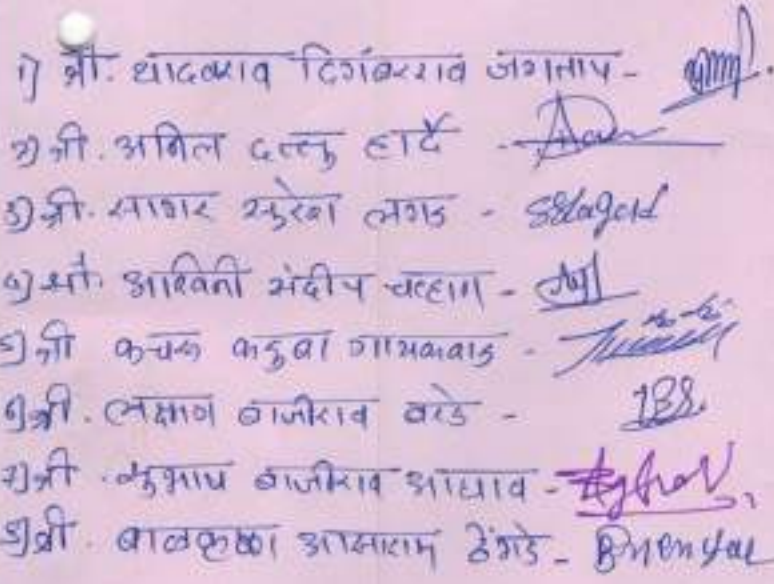 १) श्री. यादवराव दिगंबरराव जगताप -
२) श्री. अनिल दत्तु हार्दे -
३) श्री. सागर सुरेश लगड - SSlagad
४) सौ. अश्विनी संदीप चव्हाण -
५) श्री कचरू कडुबा गायकवाड -
६) श्री. लक्ष्मण बाजीराव बरडे -
७) श्री. सुभाष बाजीराव आघाव -
८) श्री. बाळकृष्ण आसाराम ढेंगडे -